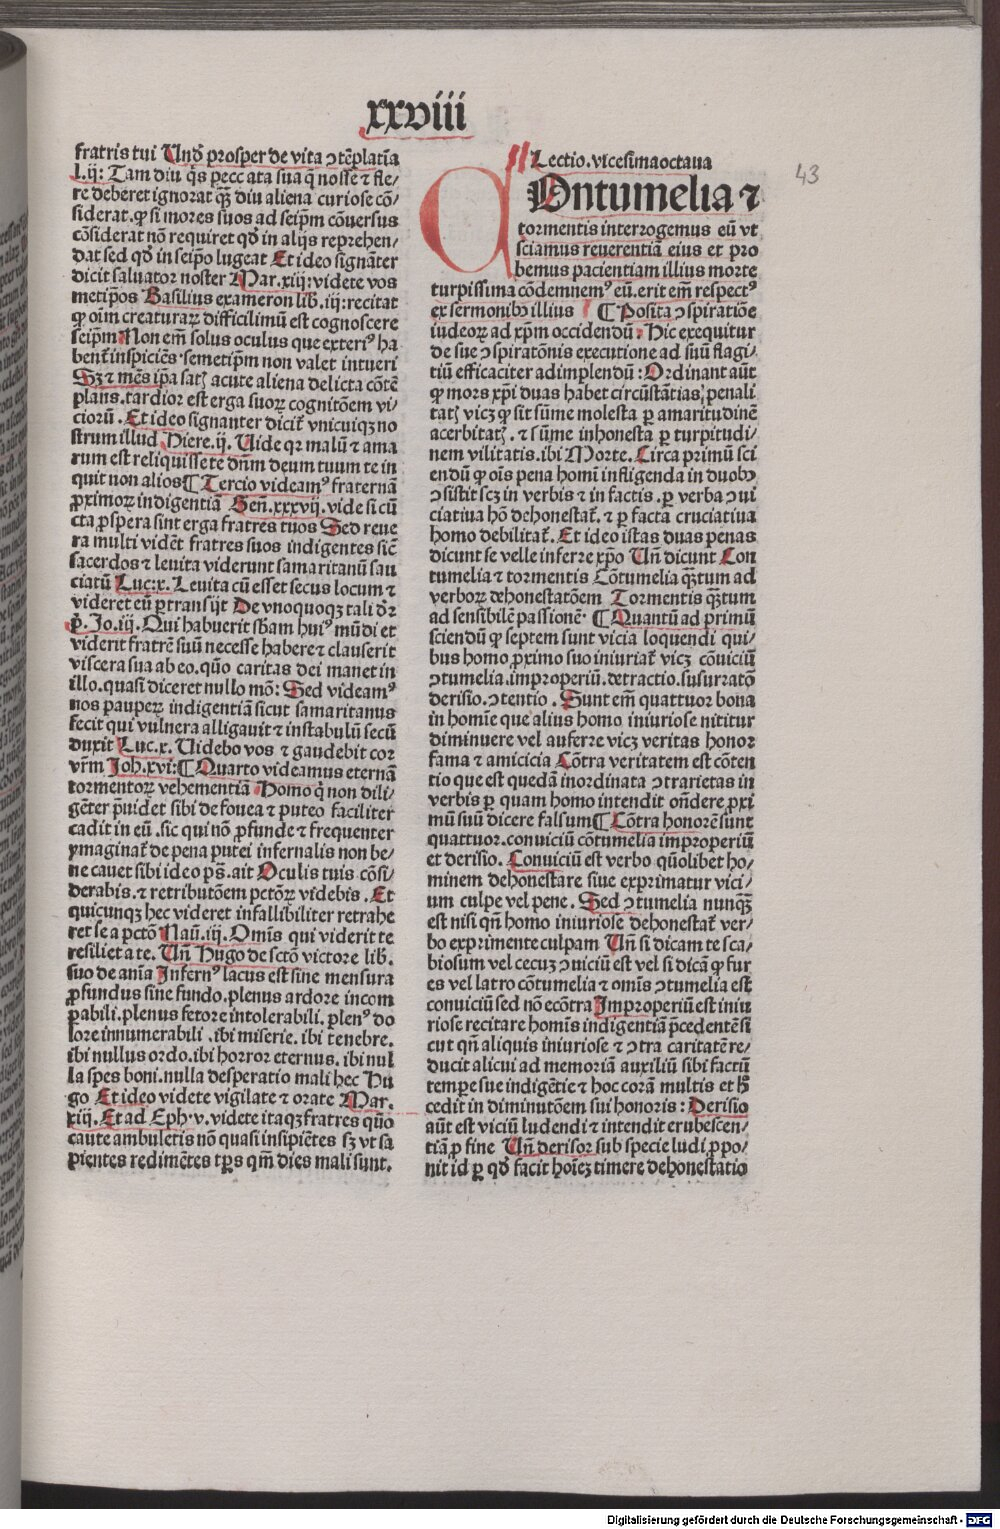 xxviii
fratris tui Un̄ prosper de vita ↄtēplatīa
l.ij: Tam diu q̄s peccata sua q̄ nosse ⁊ fle/
re deberet ignorat qꝫ diu aliena curiose cō/
siderat. ꝙ si mores suos ad seip̄m cōuersus
cōsiderat nō requiret qd̄ in alijs reprehen/
dat sed qd̄ in seip̄o lugeat Et ideo signāter
dicit saluator noster Mar.xiij: videte vos
metip̄os Basilius exameron lib. iij: recitat
ꝙ oīm creaturaꝝ difficilimū est cognoscere
seip̄m Non em̄ solus oculus que exteriꝰ ha
bent̄ inspiciēs semetip̄m non valet intueri
Sꝫ ⁊ mēs ip̄a satꝭ acute aliena delicta cōtē
plans. tardior est erga suoꝝ cognitōem vi/
cioꝝ. Et ideo signanter dicit̄ vnicuiqꝫ no
strum illud Hiere.ij. Uide qꝛ malū ⁊ ama
rum est reliquisse te dn̄m deum tuum te in
quit non alios ¶ Tercio videamꝰ fraternā
ꝓximoꝝ indigentiā Gen̄.xxxvij. vide si cū
cta ꝓspera sint erga fratres tuos Sed reue
ra multi vidēt fratres suos indigentes sic̄
sacerdos ⁊ leuita viderunt samaritanū sau
ciatū Luc.x. Leuita cū esset secus locum ⁊
videret eū ꝑtransijt De vnoquoqꝫ tali d̄r
p̄. Jo.iij. Qui habuerit sb̄am huiꝰ mūdi et
viderit fratrē suū necesse habere ⁊ clauserit
viscera sua ab eo. quō caritas dei manet in
illo. quasi diceret nullo mō: Sed videamꝰ
nos pauperꝝ indigentiā sicut samaritanus
fecit qui vulnera alligauit ⁊ in stabulū secū
duxit Luc.x. Uidebo vos ⁊ gaudebit cor
vr̄m Joh.xvi: ¶ Quarto videamus eternā
tormentoꝝ vehementiā Homo q̄ non dili/
gēter p̄uidet sibi de fouea ⁊ puteo faciliter
cadit in eū. sic qui nō ꝓfunde ⁊ frequenter
ymaginat̄ de pena putei infernalis non be/
ne cauet sibi ideo ps̄. ait Oculis tuis cōsi/
derabis. ⁊ retributōem pctōꝝ videbis. Et
quicunqꝫ hec videret infallibiliter retrahe
ret se a pctō Nau̅.iij. Omīs qui viderit te
resiliet a te. Un̄ Hugo de sctō victore lib.
suo de anīa Infernꝰ lacus est sine mensura
ꝓfundus sine fundo. plenus ardore incom
ꝑabili. plenus fetore intolerabili. plenꝰ do
lore innumerabili. ibi miserie. ibi tenebre.
ibi nullus ordo. ibi horror eternus. ibi nul
la spes boni. nulla desperatio mali hec Hu
go Et ideo videte vigilate ⁊ orate Mar.
xiij. Et ad Eph.v. videte itaqꝫ fratres quō
caute ambuletis nō quasi insipiētes sꝫ vt sa
pientes redimētes tp̄s qm̄ dies mali sunt.
Lectio.vicesimaoctaua
43
COntumelia ⁊
tormentis interrogemus eū vt
sciamus reuerentiā eius et pro
bemus pacientiam illius morte
turpissima cōdemnemꝰ eū. erit em̄ respectꝰ
ex sermonibꝰ illius ¶ Posita ↄspiratiōe
iudeoꝝ ad xp̄m occidendū. Hic exequitur
de sue ↄspiratōnis executione ad suū flagi/
tiū efficaciter adimplendū: Ordinant aūt
ꝙ mors xp̄i duas habet circūstātias, penali
tatꝭ vicꝫ ꝙ sit sūme molesta ꝑ amaritudinē
acerbitatꝭ. ⁊ sūme inhonesta ꝑ turpitudi/
nem vilitatis. ibi Morte. Circa primū sci
endū ꝙ oīs pena homī infligenda in duobꝰ
ↄsistit scꝫ in verbis ⁊ in factis. ꝑ verba ↄui
ciatiua hō dehonestat̄. ⁊ ꝑ facta cruciatiua
homo debilitat̄. Et ideo istas duas penas
dicunt se velle inferre xp̄o Un̄ dicunt Con
tumelia ⁊ tormentis Cōtumelia qꝫtum ad
verboꝝ dehonestatōem Tormentis qꝫtum
ad sensibilē passionē. ¶ Quantū ad primū
sciendū ꝙ septem sunt vicia loquendi qui/
bus homo ꝓximo suo iniuriat̄ vicꝫ cōuiciū
ↄtumelia. improperiū. detractio. susurratō
derisio. ↄtentio. Sunt em̄ quattuor bona
in homīe que alius homo iniuriose nititur
diminuere vel auferre vicꝫ veritas honor
fama ⁊ amicicia Cōtra veritatem est cōten
tio que est quedā inordinata ↄtrarietas in
verbis ꝑ quam homo intendit on̄dere ꝓxi
mū suū dicere falsum ¶ Cōtra honorē sunt
quattuor. conuiciū cōtumelia improperiū
et derisio. Conuiciū est verbo quōlibet ho/
minem dehonestare siue exprimatur vici/
um culpe vel pene. Sed ↄtumelia nunqꝫ
est nisi qn̄ homo iniuriose dehonestat̄ ver/
bo exprimente culpam Un̄ si dicam te sca/
biosum vel cecuꝫ ↄuiciū est vel si dicā ꝙ fur
es vel latro cōtumelia ⁊ omīs ↄtumelia est
conuiciū sed nō ecōtra Improperiū est iniu
riose recitare homīs indigentiā p̄cedentē si
cut qn̄ aliquis iniuriose ⁊ ↄtra caritatē re/
ducit alicui ad memoriā auxiliū sibi factū
tempe sue indigētie ⁊ hoc corā multis et h̄
cedit in diminutōem sui honoris: Derisio
aūt est viciū ludendi ⁊ intendit erubescen/
tiā ꝓ fine Un̄ derisor sub specie ludi ꝓpo/
nit id ꝑ qd̄ facit hoīeꝫ timere dehonestatio
Digitalisierung gefördert durch die Deutsche Forschungsgemeinschaft - DFG